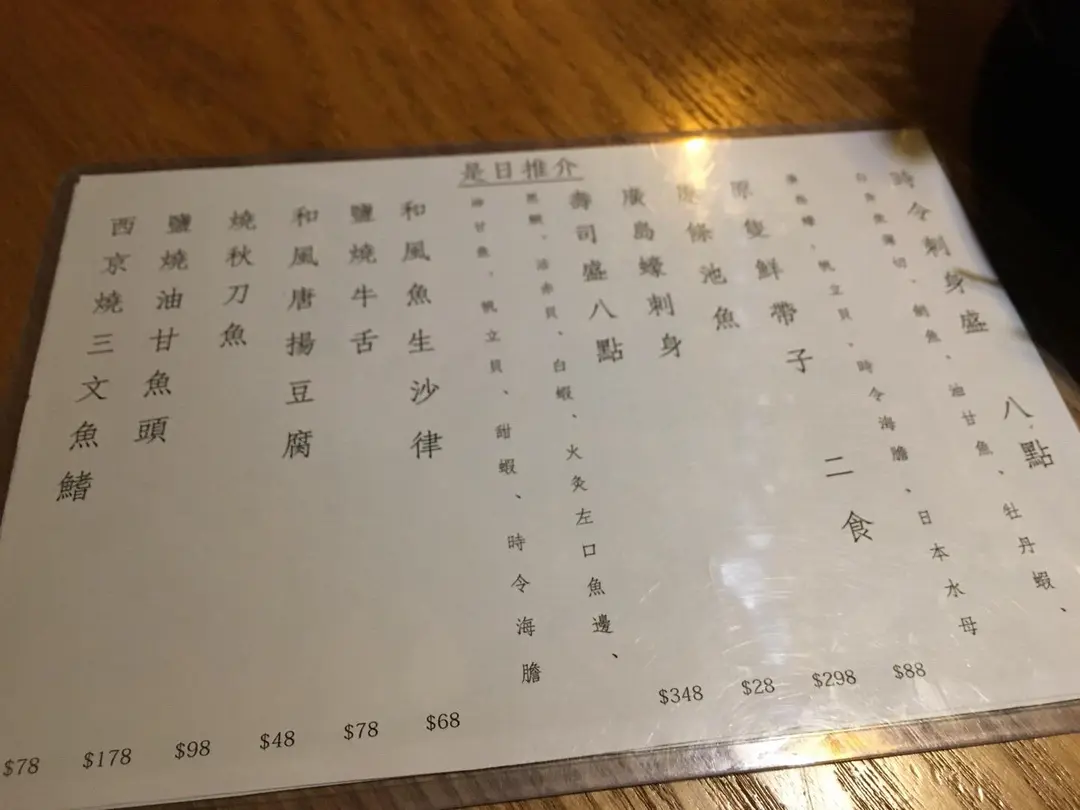 是日推介
時令刺身盛 八點
白身魚薄切、鯛魚、油甘魚、牡丹蝦、
象拔蚌、帆立貝、時令海膽、日本水母
原隻鮮帶子 二食 $88
原條池魚 $298
廣島蠔刺身 $28
壽司盛八點 $348
黑鯛、活赤貝、白蝦、火炙左口魚邊、
油甘魚、帆立貝、甜蝦、時令海膽
和風魚生沙律 $68
鹽燒牛舌 $78
和風唐揚豆腐 $48
燒秋刀魚 $98
鹽燒油甘魚頭 $178
西京燒三文魚鰭 $78